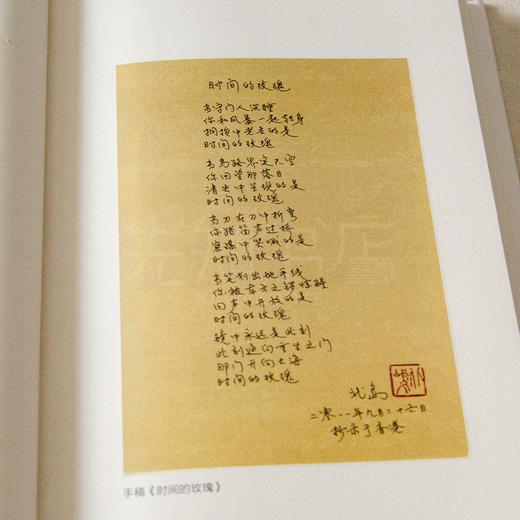 时间的玫瑰
当守门人沉睡
你和风暴一起转身
拥抱中老去的是
时间的玫瑰
当鸟路界定天空
你回望那落日
消失中呈现的是
时间的玫瑰
当刀在水中折弯
你踏笛声过桥
密谋中哭喊的是
时间的玫瑰
当笔划出地平线
你被东方之锣惊醒
回声中开放的是
时间的玫瑰
镜中永远是此刻
此刻通向重生之门
那门开向大海
时间的玫瑰
北岛
二零一一年九月二十六日
抄录于香港
手稿《时间的玫瑰》